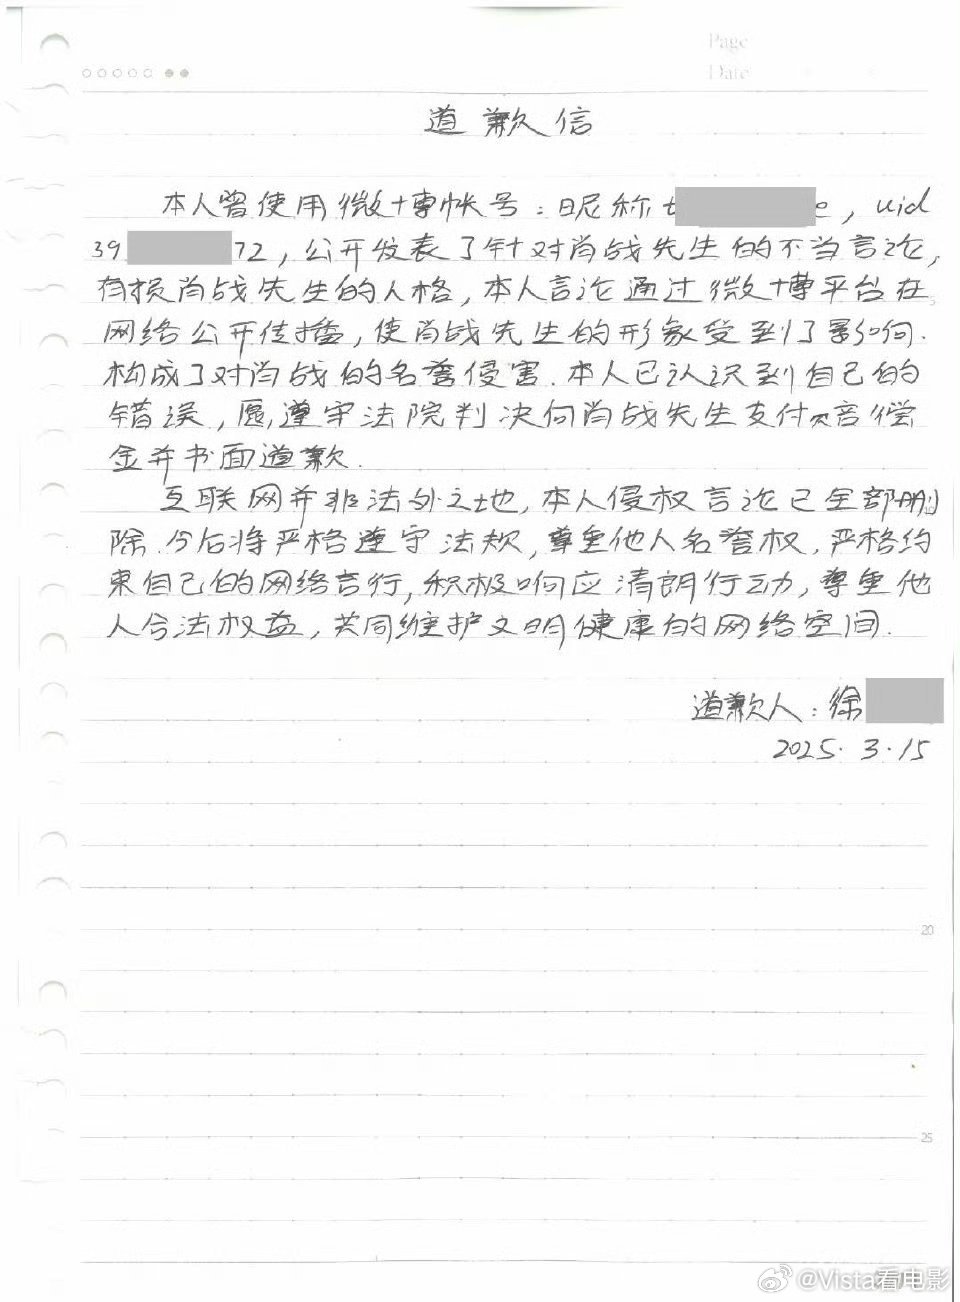 Page
Date
道歉信
本人曾使用微博帐号：昵称t e，uid
39 72，公开发表了针对肖战先生的不当言论，
有损肖战先生的人格，本人言论通过微博平台在
网络公开传播，使肖战先生的形象受到了影响.
构成了对肖战的名誉侵害.本人已认识到自己的
错误，愿遵守法院判决向肖战先生支付 偿
金并书面道歉.
互联网并非法外之地，本人侵权言论已全部删
除.今后将严格遵守法规，尊重他人名誉权，严格约
束自己的网络言行，积极响应清朗行动，尊重他
人合法权益，共同维护文明健康的网络空间.
道歉人：徐
2025.3.15
20
25
@Vista看电影